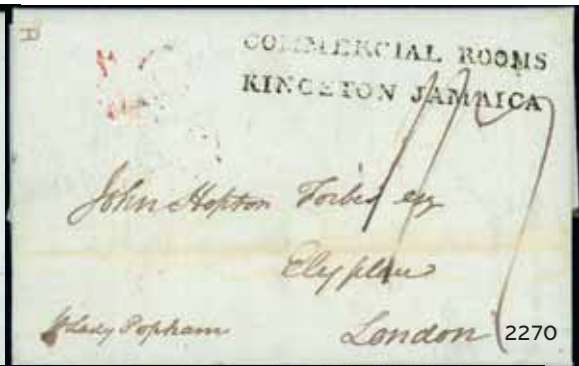 COMMERCIAL ROOMS
KINGSTON JAMAICA
John Hopton Forbes esq
Ely place
London
Lady Popham
2270